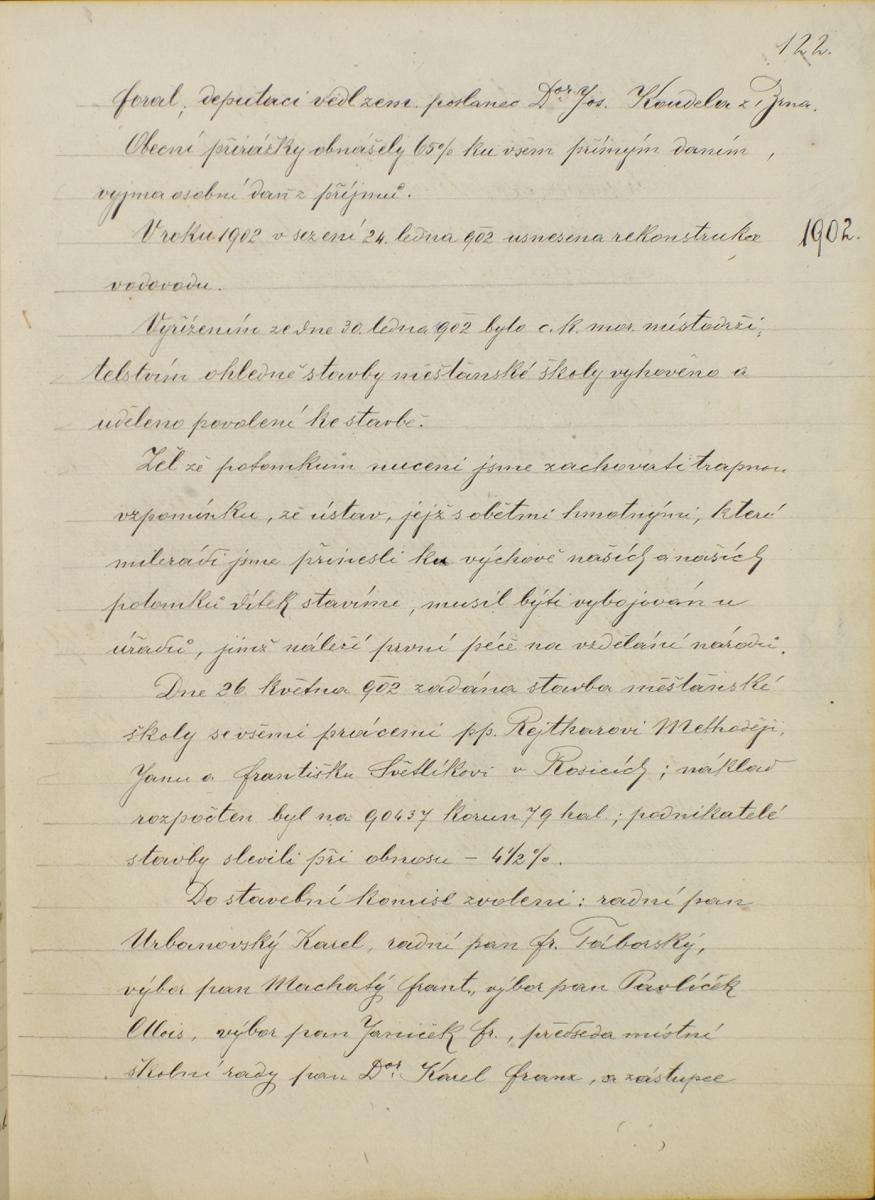 122.
foral; deputaci vedl zem. poslanec Dor. Jos. Koudela z Brna.
Obecní přirážky obnášely 65% ku všem přímým daním,
vyjma osobní daň z příjmů.
V roku 1902 v sezení 24. ledna 902 usnesena rekonstrukce
1902.
vodovodu.
Vyřízením ze dne 30. ledna 902 bylo c. k. mor. místodrži-
telstvím ohledně stavby měšťánské školy vyhověno a
uděleno povolení ke stavbě.
Žel že potomkům nuceni jsme zachovati trapnou
vzpomínku, že ústav, jejž s obětmi hmotnými, které
milerádi jsme přinesli ku výchově našich a našich
potomků dítek stavíme, musil býti vybojován u
úřadů, jimž náleží první péče na vzdělání národů.
Dne 26. května 902 zadána stavba měšťánské
školy se všemi pracemi pp. Rejtharovi Methoději,
Janu a Františku Světlíkovi v Rosicích; náklad
rozpočten byl na 90437 korun 79 hal.; podnikatelé
stavby slevili při obnosu - 4 1/2 %.
Do stavební komise zvoleni: radní pan
Urbanovský Karel, radní pan Fr. Táborský,
výbor pan Machatý Frant., výbor pan Pavlíček
Alois, výbor pan Janíček Fr., předseda místní
školní rady pan Dor. Karel Franz, a zástupce